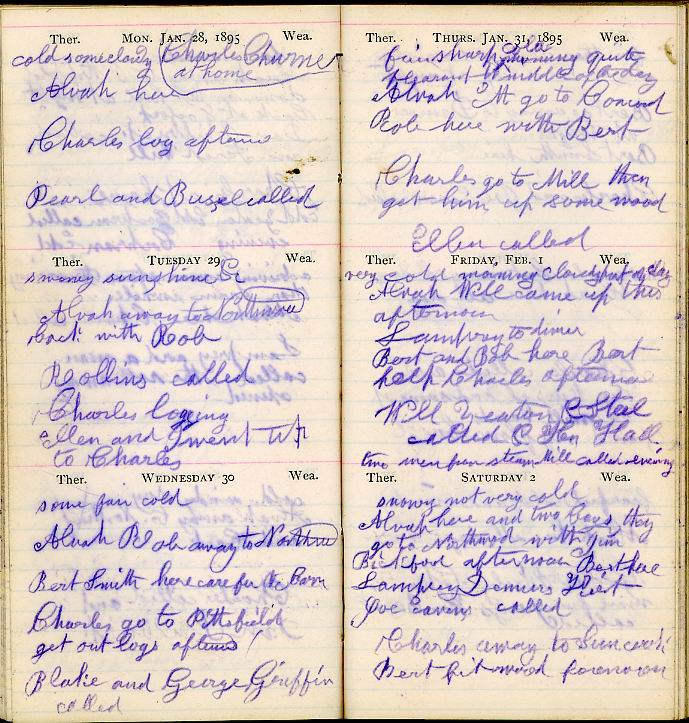 Ther. MON. JAN. 28, 1895 Wea.
cold some cloudy Charles Churne
at home
Alvah here
Charles log afterno
Pearl and Buzel called
Ther. TUESDAY 29 Wea.
snowey sunshine
Alvah away to Northwood
back with Rob
Rollins called
Charles loging
Ellen and I went up
to Charles
Ther. WEDNESDAY 30 Wea.
some fair cold
Alvah Rob away to Northwod
Bert Smith here care for Barn
Charles go to Pittsfield
get out logs afterno
Blake and George Griffin
called
Ther. THURS. JAN. 31, 1895 Wea.
fair sharp cold morning quite
plearant middle of the day
Alvah & M go to Concord
Rob here with Bert
Charles go to Mill then
get him up some wood
Ellen called
Ther. FRIDAY, FEB. 1 Wea.
very cold morning cloudy part of day
Alvah Will came up this
afternoon
Lamprey to diner
Bert and Bob here Bert
help Charles afternoon
Will Yeaton C Steel
called C Hall
two men from steam Mill called evening
Ther. SATURDAY 2 Wea.
snowy not very cold
Alvah here and two boys they
go to Northwod with him
Bickford afternoon Bert here
Lamprey Demers
Joe called
Charles away to Suncook
Bert fit wood forenoon